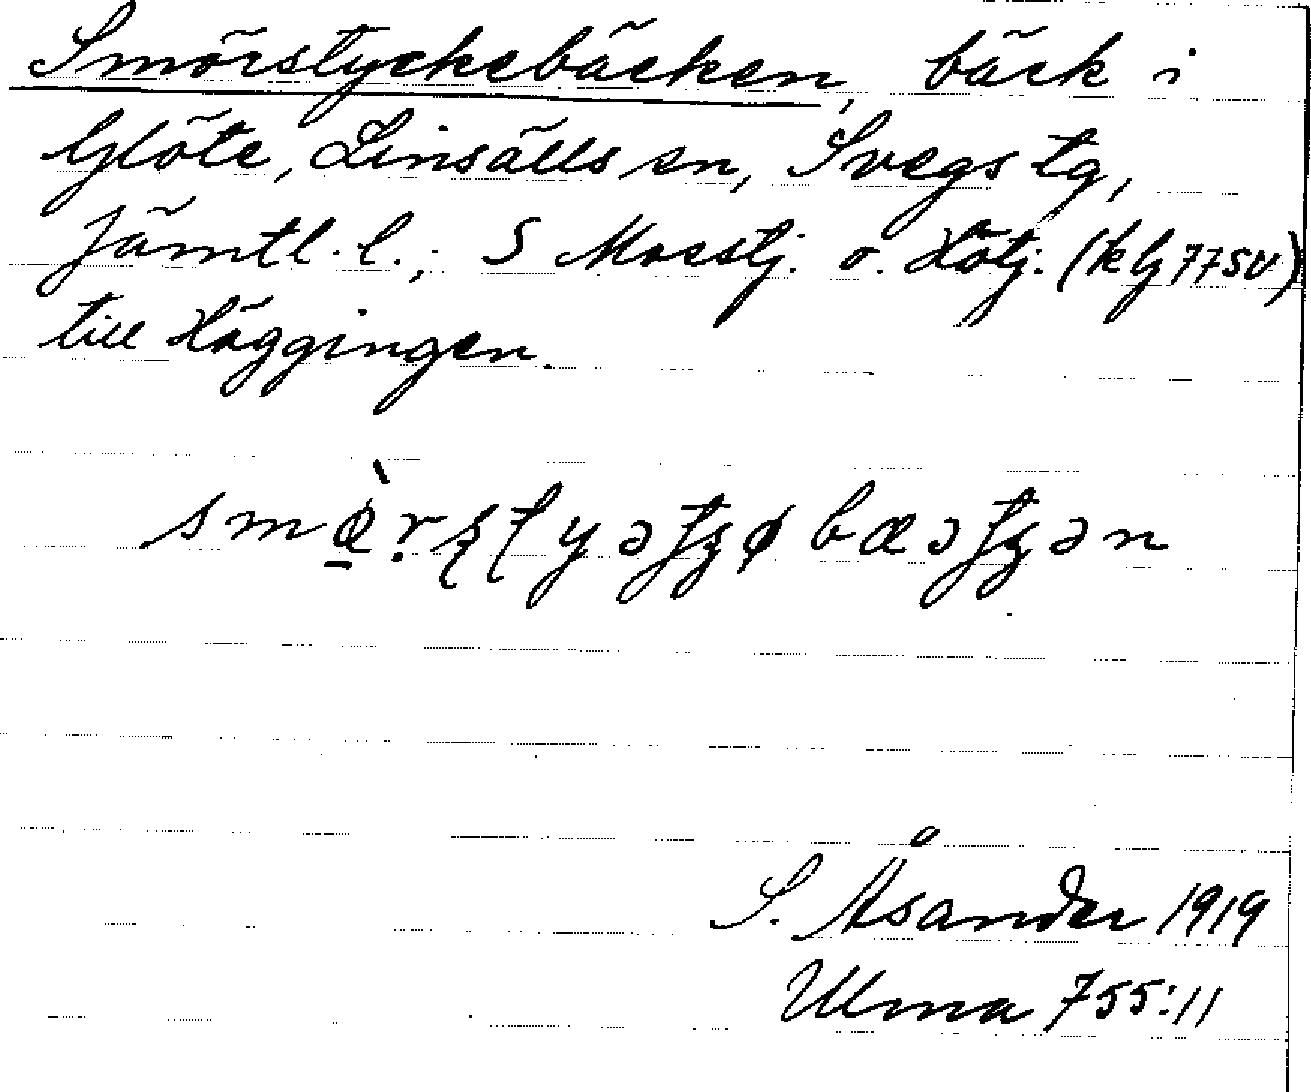 Smörstyckebäcken, bäck i
Glöte, Linsälls sn, Svegs tg,
Jämtl. l.; S Mosstj. o. Hötj. (klj 77SV)
till Häggingen.
S. Åsander 1919
Ulma 755:11